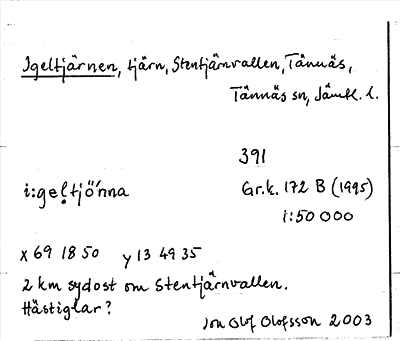 Igeltjärnen, tjärn, Stentjärnvallen, Tännäs,
Tännäs sn, Jämtl. l.
391
i:gel̥tjö́nna
Gr.k. 172 B (1995)
1:50 000
x 69 18 50 y 13 49 35
2 km sydost om Stentjärnvallen.
Hästiglar?
Jon Olof Olofsson 2003